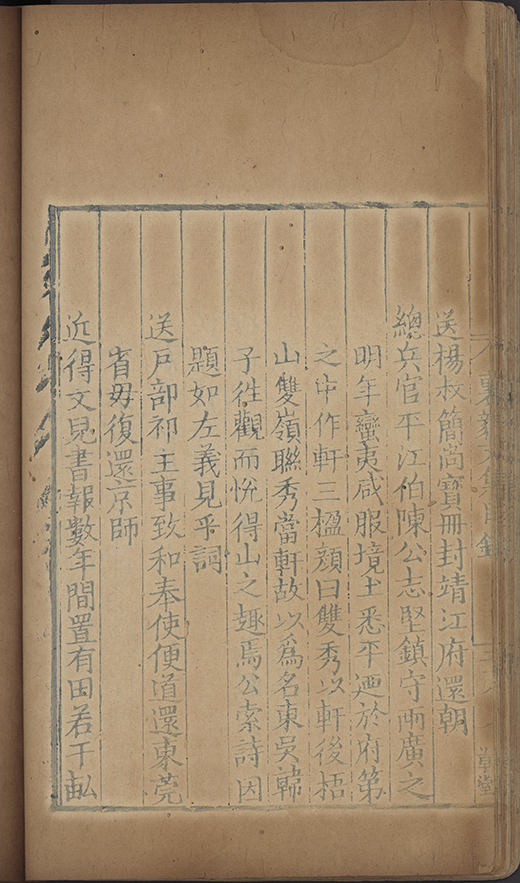 襄毅文集目錄
草堂
送楊叔簡尚寶冊封靖江府還朝
總兵官平江伯陳公志堅鎮守兩廣之
明年蠻夷咸服境土悉平廼於府第
之中作軒三楹顏曰雙秀以軒後梧
山雙嶺聯秀當軒故以爲名東吳韓
子徃觀而悅得山之趣焉公索詩因
題如左義見乎詞
送戶部祁主事致和奉使便道還東莞
省毋復還京師
近得文兒書報數年間置有田若干畝